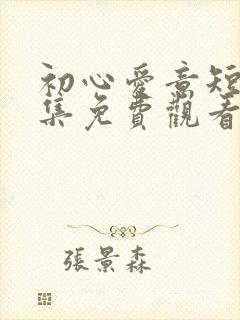 初心爱意短
集免費觀看
張景森